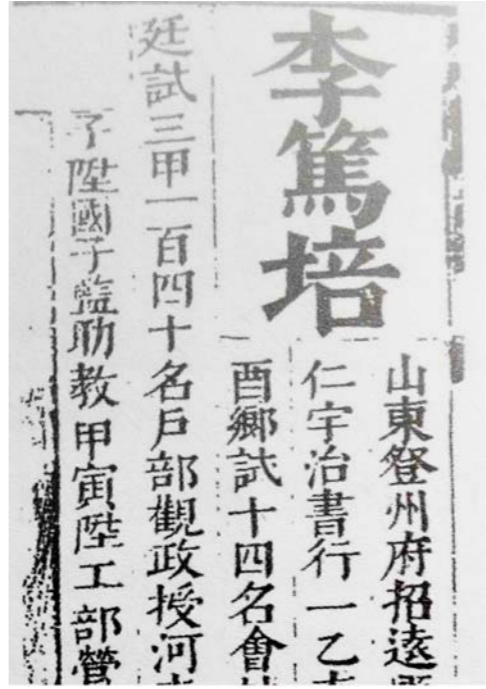 李篤培
山東登州府招遠
仁宇治書行一乙
酉鄉試十四名會
廷試三甲一百四十名戶部觀政授河
子陞國子監助教甲寅陞工部營